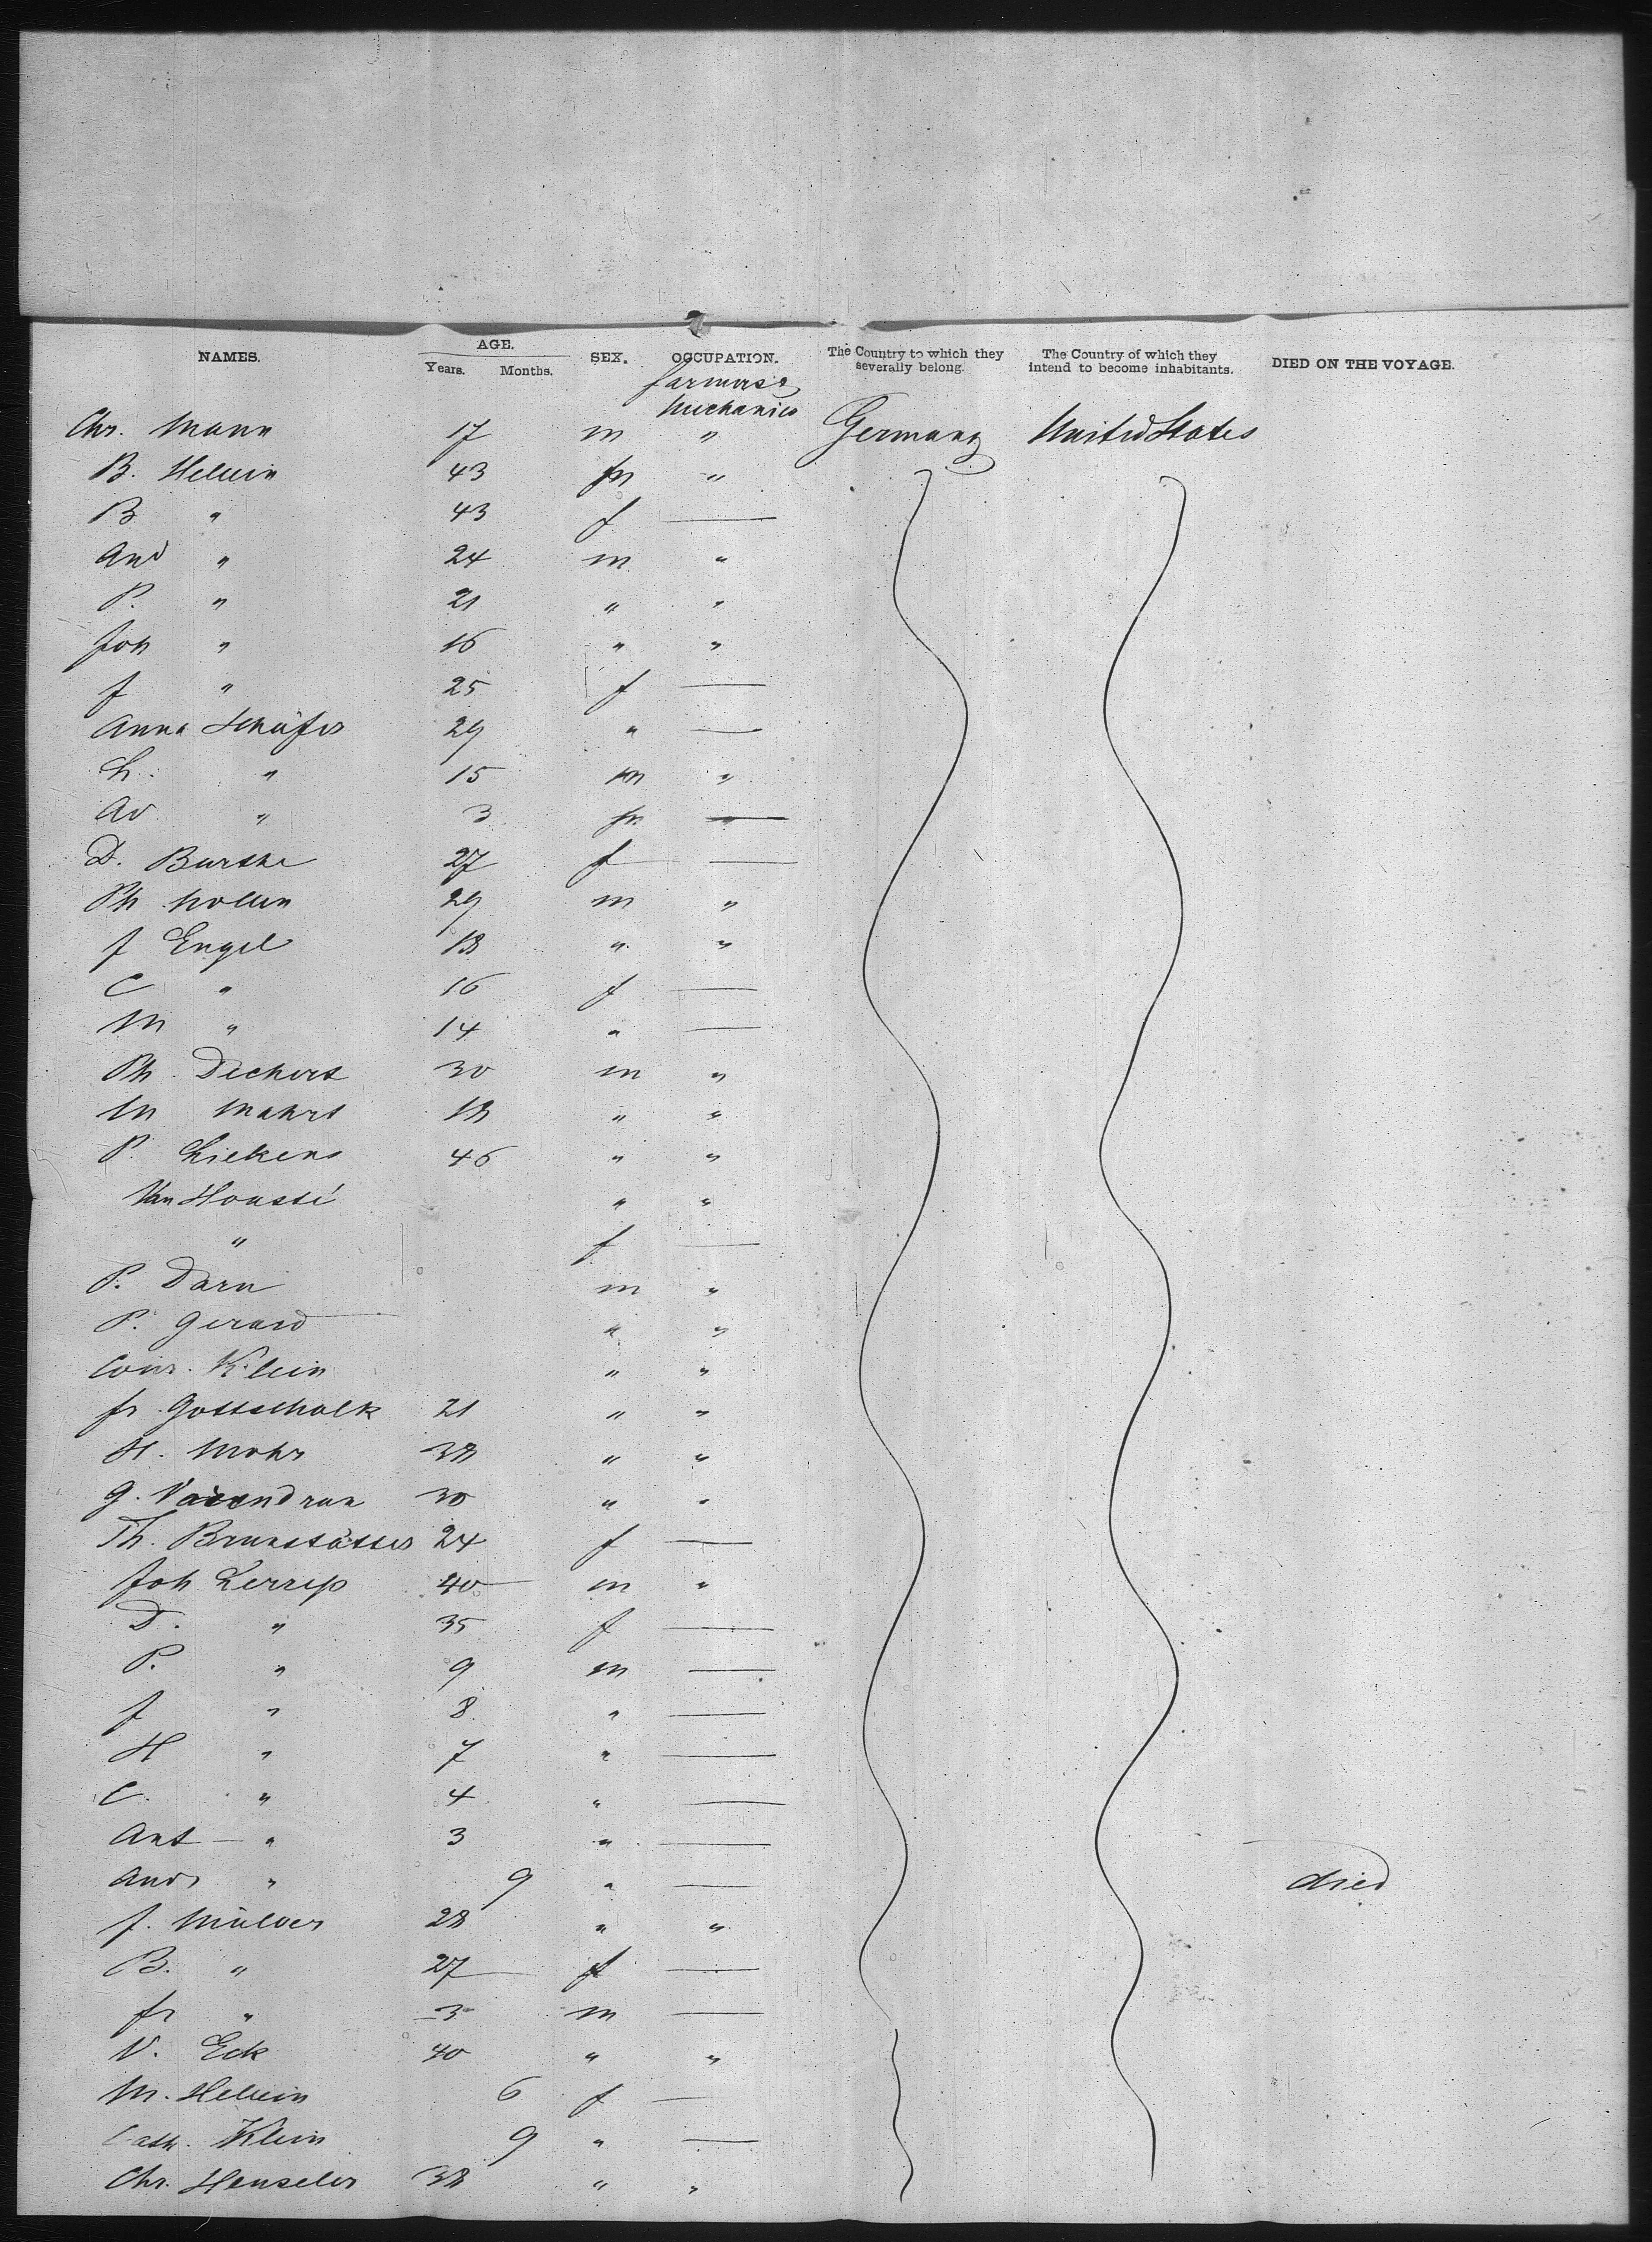 NAMES. AGE. SEX. OCCUPATION. The Country to which they severally belong. The Country of which they intend to become inhabitants. DIED ON THE VOYAGE.
Years. Months.
farmers &
Mechanics
Chr. Mann 17 m " Germany United States
B. Hellein 43 m "
B " 43 f —
And " 24 m "
P. " 21 " "
Joh " 16 " "
J " 25 f —
Anna Schäfer 29 " —
L. " 15 m "
Ad " 3 m —
D. Burske 27 f —
Ph Mollen 29 m "
J Engel 18 " "
C " 16 f —
M " 14 " —
Ph. Dechert 30 m "
M Mahrt 18 " "
P. Liekens 46 " "
Van Housté " "
" f —
P. Darn m "
P. Gerard " "
Conr. Klein " "
Fr. Gottschalk 21 " "
H. Mohr 38 " "
G. 30 " "
Th. 24 f —
Joh Lerrep 40 m "
D. " 35 f —
P. " 9 m —
J " 8 " —
H " 7 " —
C. " 4 " —
Ant — " 3 " —
Andr " 9 " — died
J. Mülder 28 " "
B. " 27 f —
Fr " 3 m —
N. Eck 40 " "
M. Hellein 6 f —
Cath. Klein 9 " —
Chr. Henseler 38 " "